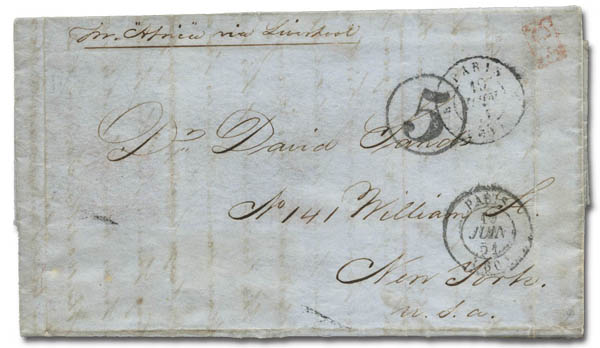 Pr. "Africa" via Liverpool
PARIS
5
Dr. David Sands
No 141 William St.
PARIS
JUIN
51
New York.
U.S.A.